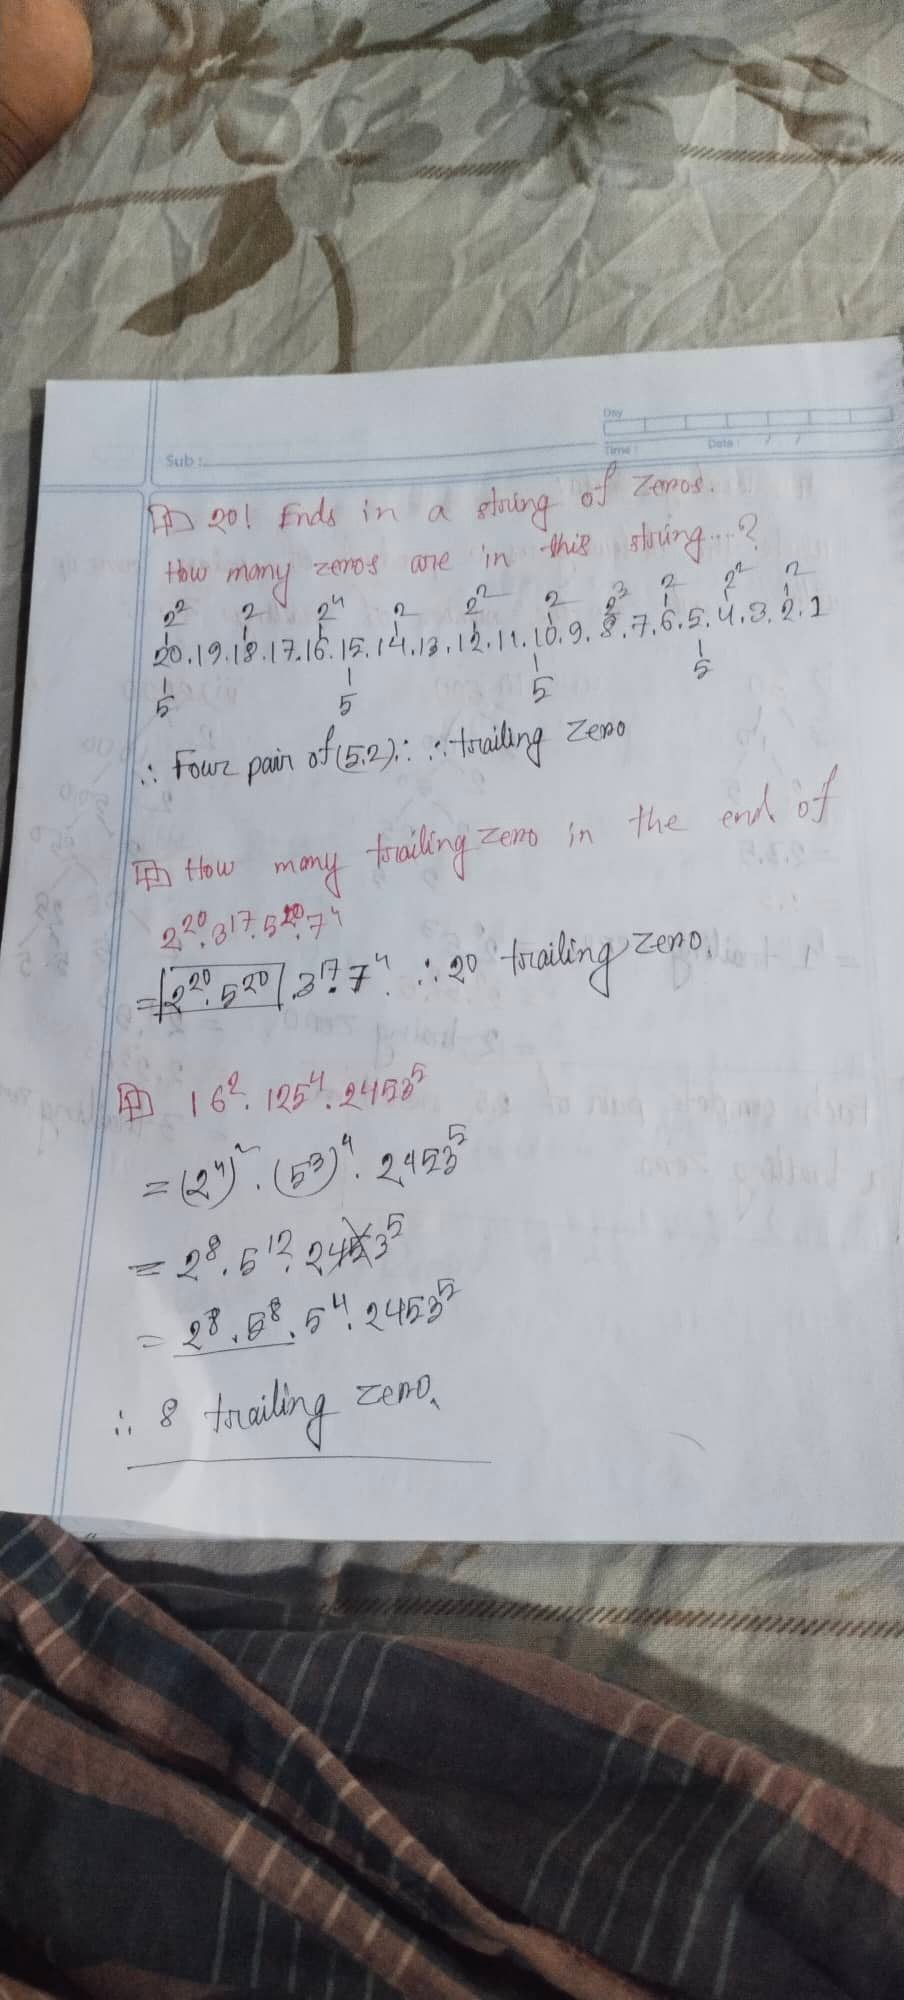 Day
Time :
Date : / /
Sub :
20! Ends in a string of zeros.
How many zeros are in this string...?
2² 2 2⁴ 2 2² 2 2³ 2 2² 2
20.19.18.17.16.15.14.13.12.11.10.9.8.7.6.5.4.3.2.1
5 5 5 5
∴ Four pair of (5.2) ∴ ∴ trailing zero
How many trailing zero in the end of
2²⁰.3¹⁷.5²⁰.7⁴
= 2²⁰.5²⁰.3¹⁷.7⁴ ∴ 20 trailing zero.
16². 125⁴. 2453⁵
= (2⁴)². (5³)⁴. 2453⁵
= 2⁸. 5¹². 2453⁵
= 2⁸. 5⁸. 5⁴. 2453⁵
∴ 8 trailing zero.